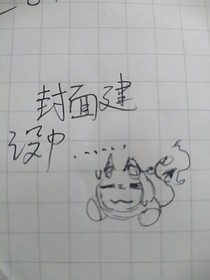 封面建
设中......